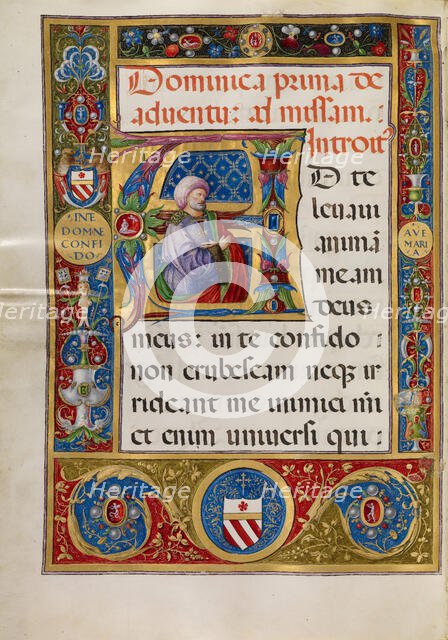 Dominica prima de
adventu: ad missam.
Introit9
A
D te
levavi
animā
meam
deus
meus: in te confido
non erubescam neq3 ir
rideant me inimici mi
et enim universi qui
INE
DOMNE
CONFI
DO
AVE
MARI
A
Heritage
Heritage
Heritage
Heritage
Heritage
Heritage
Heritage